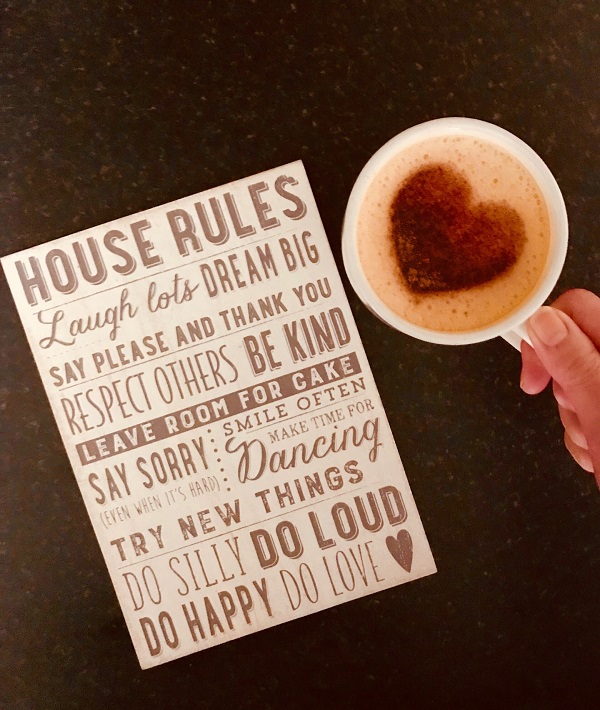 HOUSE RULES
Laugh lots DREAM BIG
SAY PLEASE AND THANK YOU
RESPECT OTHERS BE KIND
LEAVE ROOM FOR CAKE
SMILE OFTEN
SAY SORRY
(EVEN WHEN IT'S HARD)
MAKE TIME FOR
Dancing
TRY NEW THINGS
DO SILLY DO LOUD
DO HAPPY DO LOVE